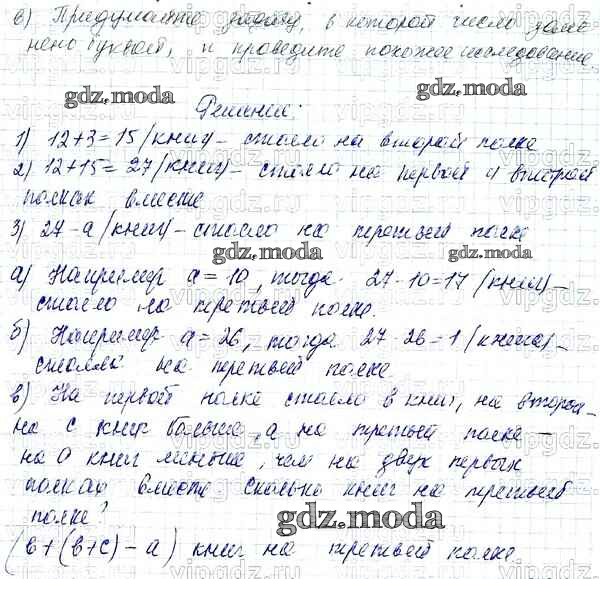 в) Придумайте задачу, в которой число заме
нено буквой, и проведите похожее исследование.
gdz.moda gdz.moda
Решение:
1) 12+3=15 (книг) – стояло на второй полке
2) 12+15=27 (книг) – стояло на первой и второй
полках вместе
3) 27-а (книг) – стояло на третьей полке
gdz.moda gdz.moda
а) Например а=10, тогда 27-10=17 (книг) –
стояло на третьей полке.
б) Например а=26, тогда 27-26=1 (книга) –
стояла на третьей полке
в) На первой полке стояло в книг, на второй –
на с книг больше, а на третьей полке –
на а книг меньше, чем на двух первых
полках вместе. Сколько книг на третьей
полке?
gdz.moda
(в+(в+с)-а) книг на третьей полке.